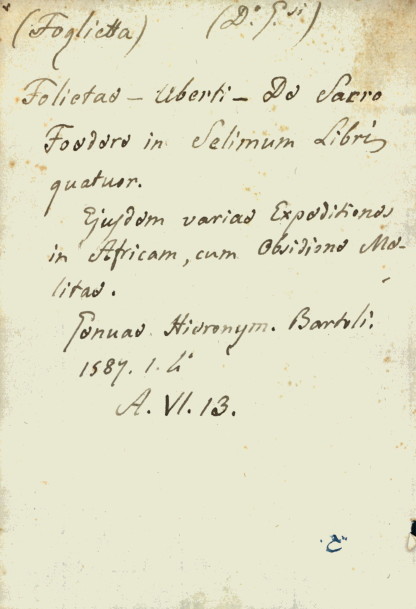 (Foglietta) (D.º G.si)
Folietae - Uberti - De Sacro
Foedere in Selimum Libri
quatuor.
Ejusdem variae Expeditiones
in Africam, cum Obsidione Me-
litae.
Genuae Hieronym. Bartoli.
1587. 1. 4º
A. VI. 13.